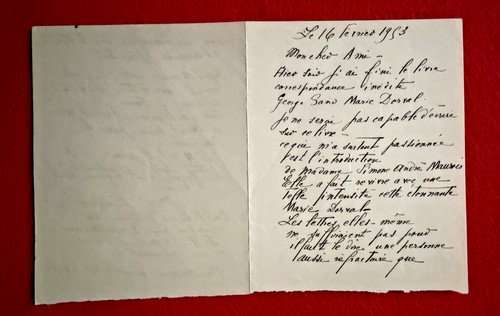 Le 16 fevrier 1953
Mon cher Ami -
Hier soir j'ai fini le livre
correspondance inédite
George Sand Marie Dorval -
je ne serai pas capable d'écrire
sur ce livre -
ce qui m'a surtout passionnée
c'est l'introduction
de madame Simone André Maurois
Elle a fait revivre avec une
telle intensité cette étonnante
Marie Dorval
Les lettres elles-même
ne suffiraient pas pour
il faut le dire une personne
aussi réfractaire que